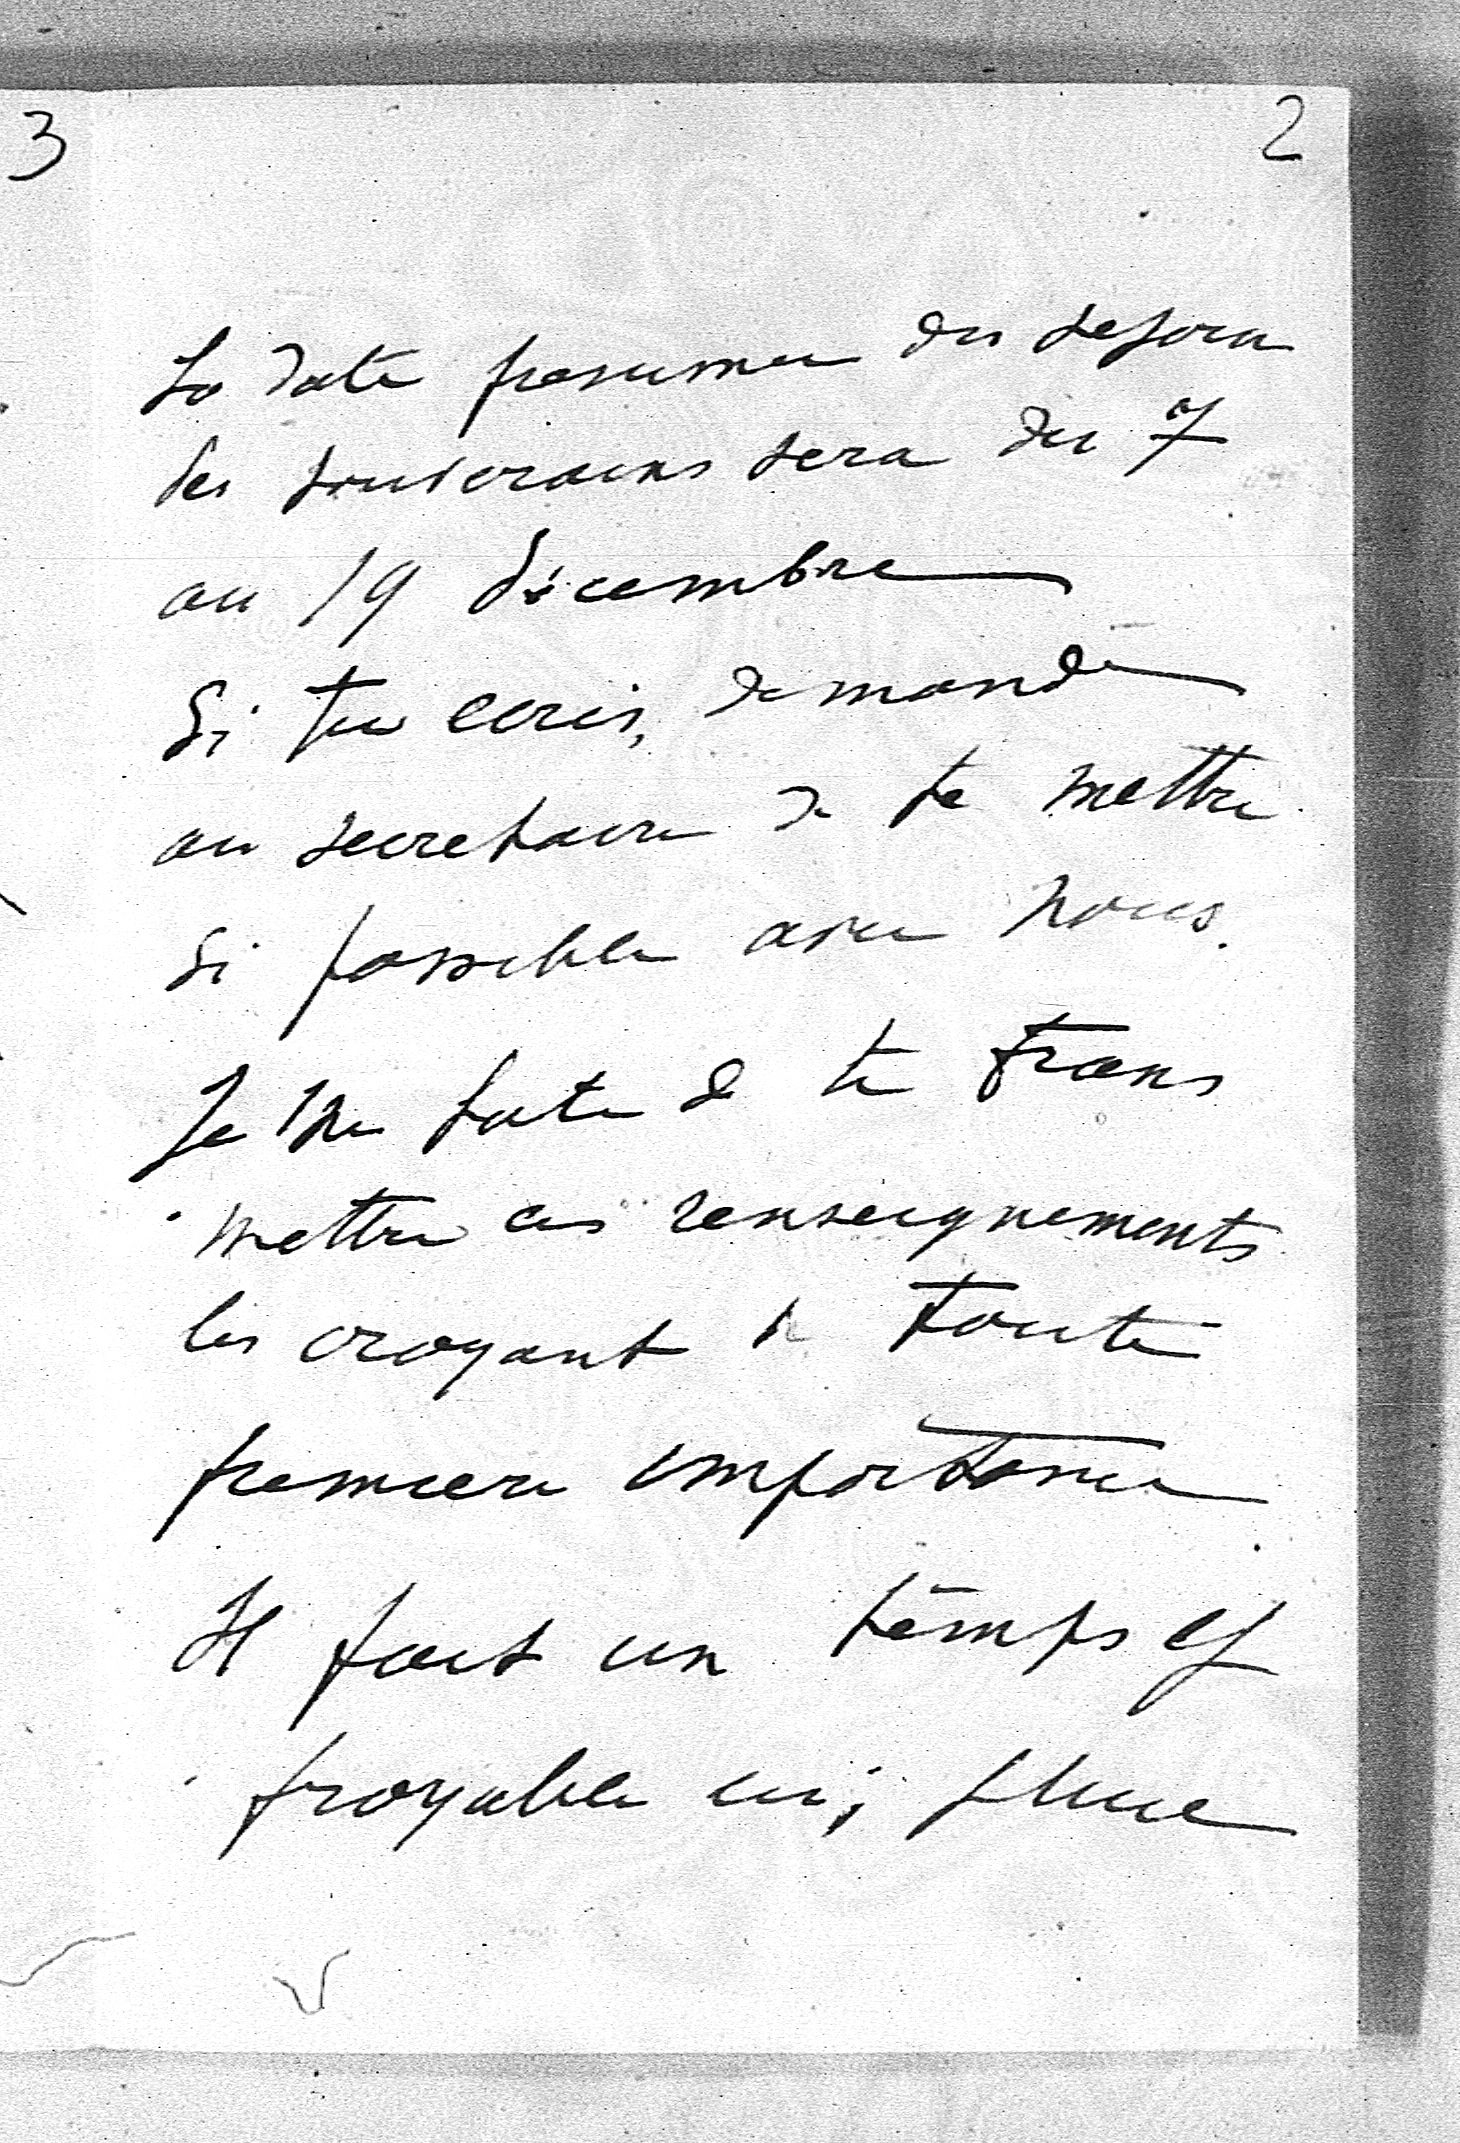 3
2
La date presumee du sejour
des souverains sera du 7
au 19 décembre
Si tu ecris, demande
au secretaire de te mettre
si possible avec nous.
Je me hate de te trans
mettre ces renseignements
les croyant de toute
premiere importance
Il fait un temps ef
froyable ici; pluie